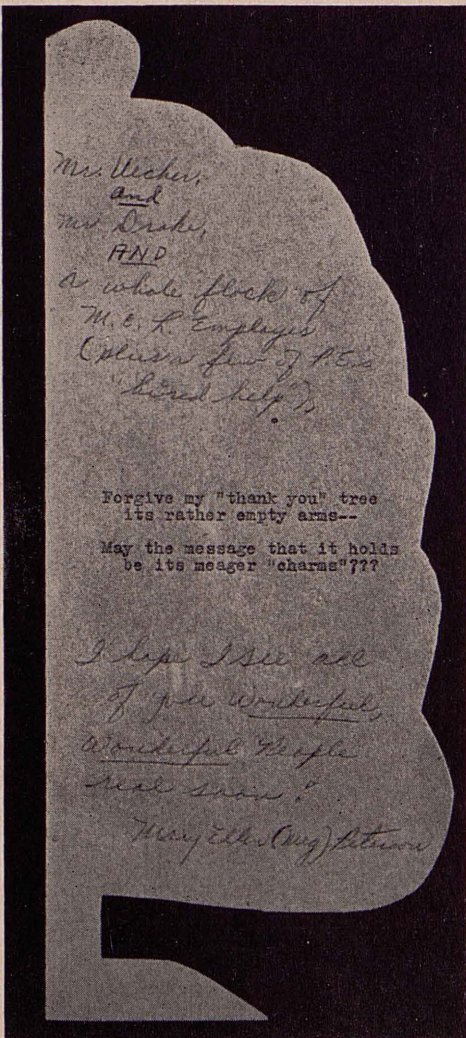 Mr. Uecker,
and
Mr. Drake,
AND
A whole flock of
M. & L. Employes
(plus a few of P.E.s
hired help?)
Forgive my "thank you" tree
its rather empty arms--
May the message that it holds
be its meager "charms"???
I hope I see all
of you wonderful,
wonderful People
real soon!
Mary Ellen (Meg) Peterson